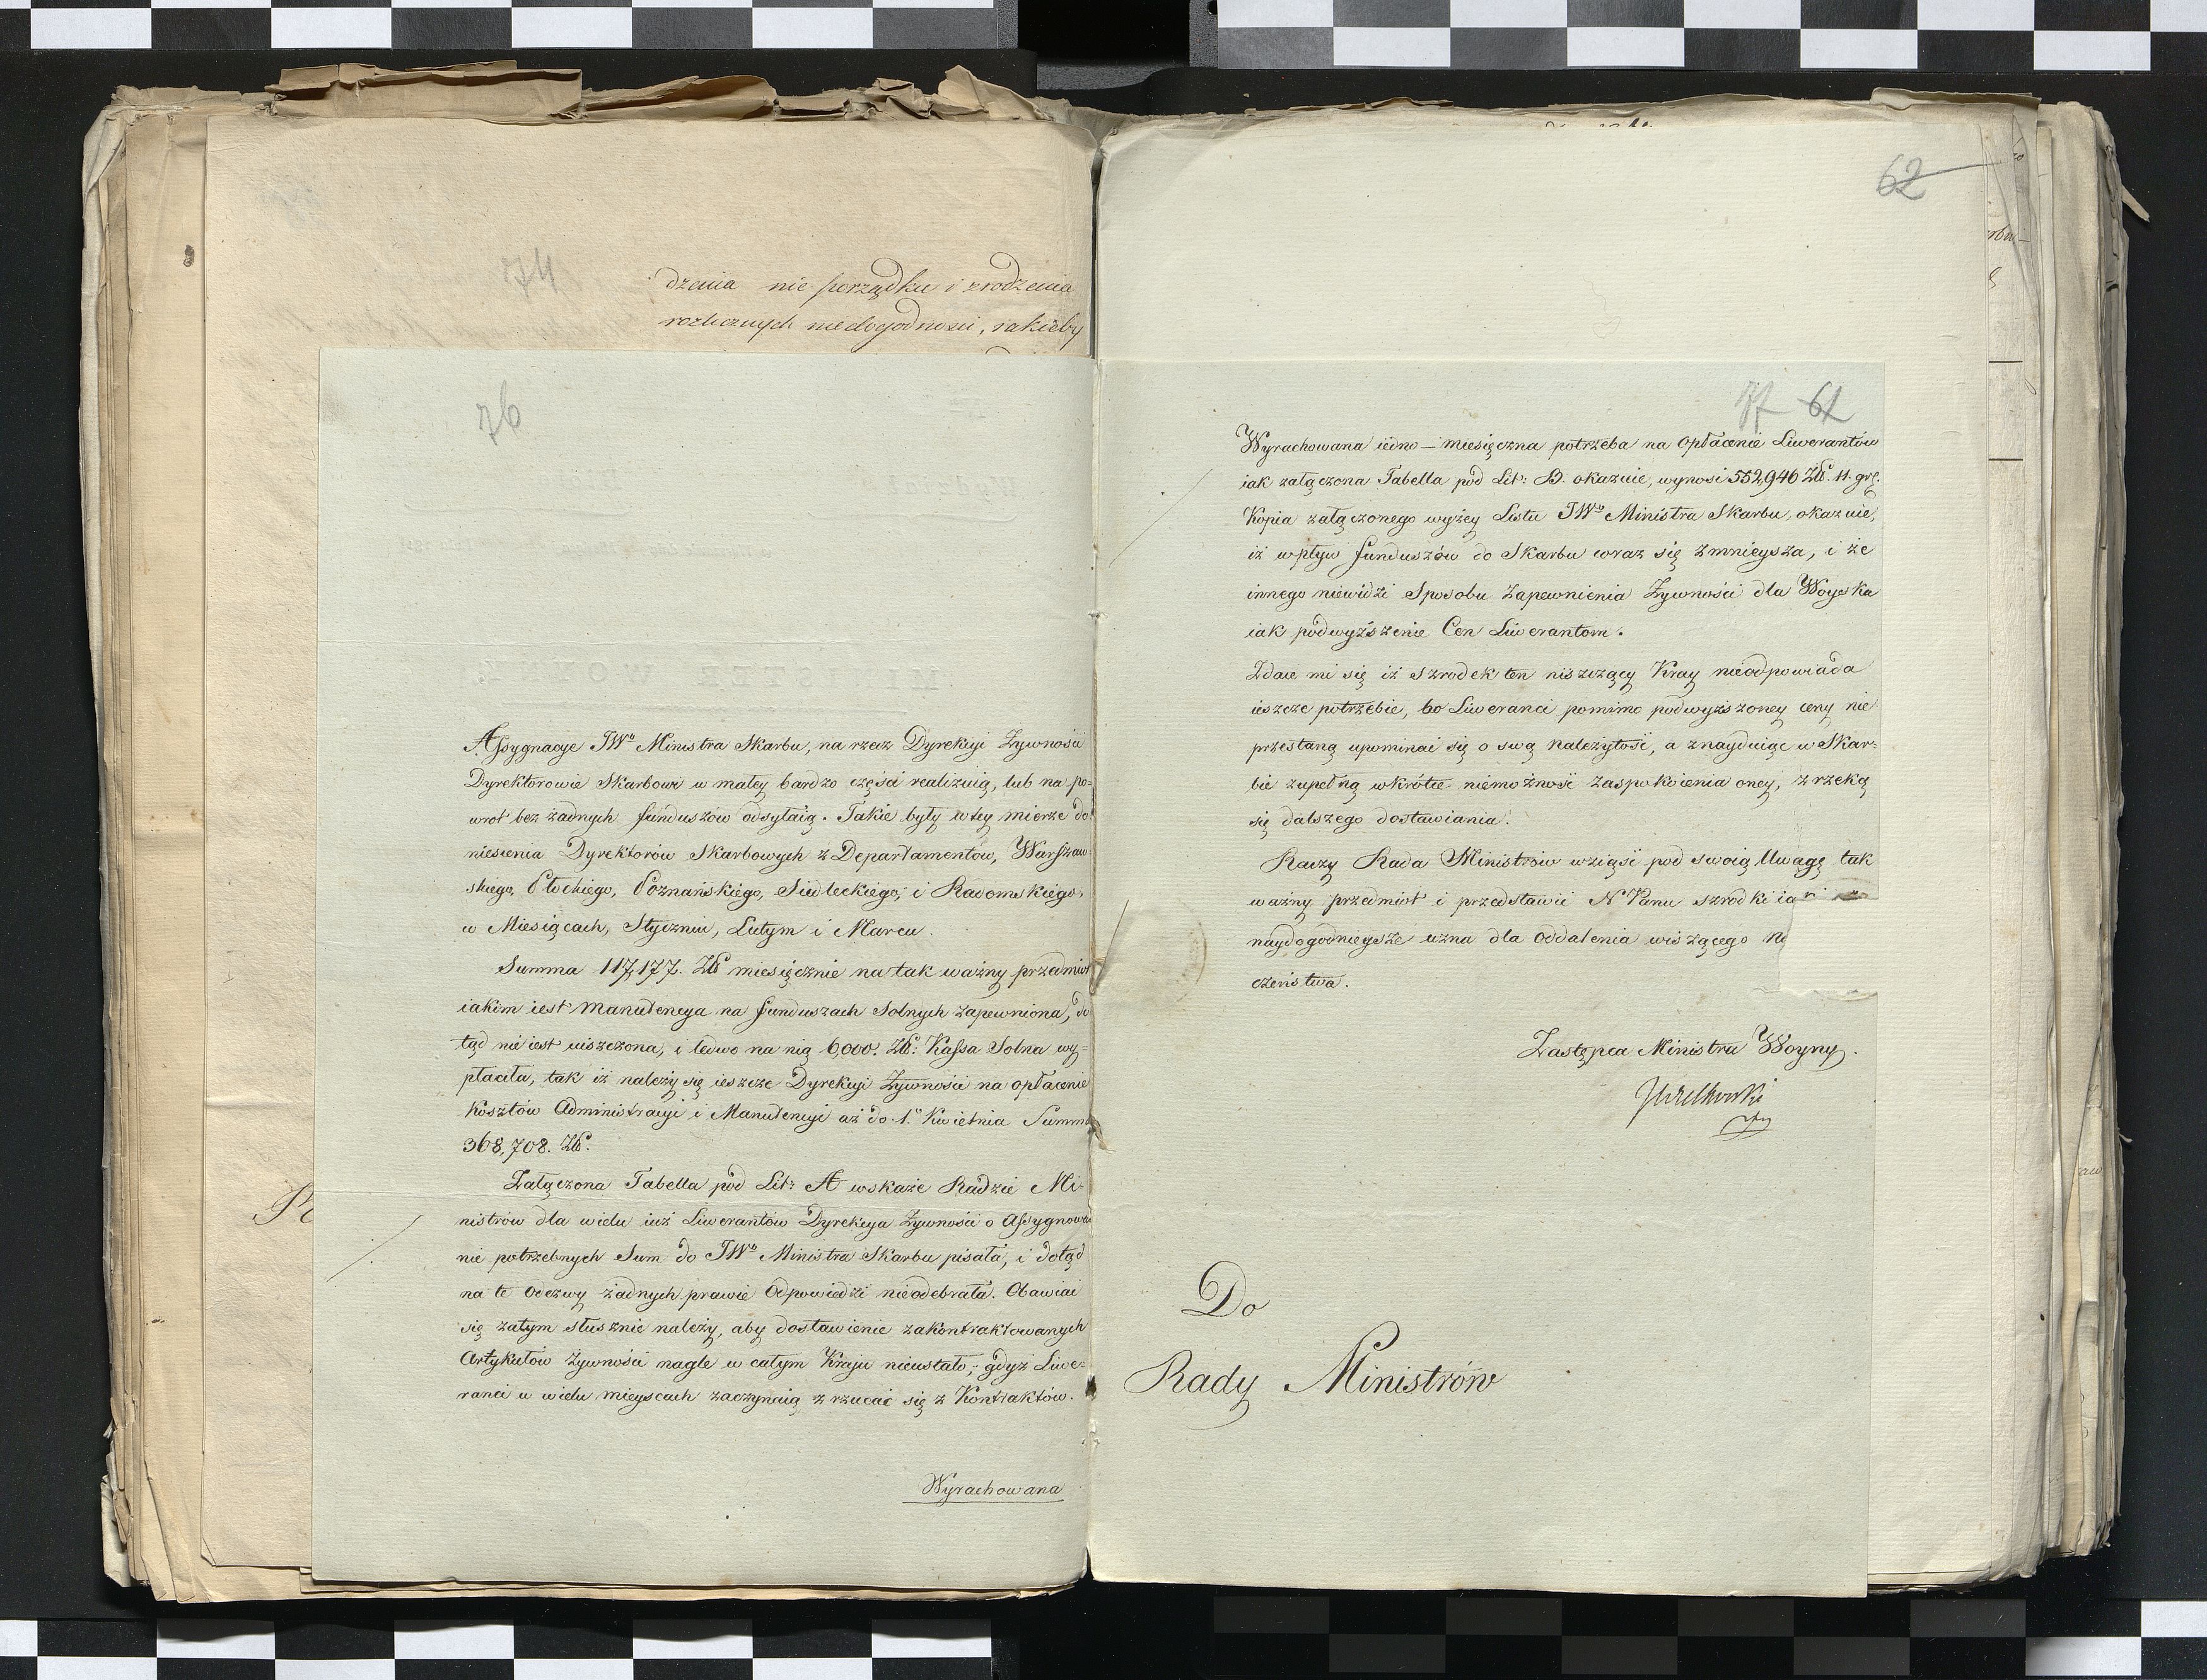 74
dzenia nie porządku i zrodzenia
rozlicznych niedogodności, iakieby
76
Assygnacye JWo Ministra Skarbu, na rzecz Dyrekcyi Żywności
Dyrektorowie Skarbowi w małey bardzo części realizuią, lub na po=
wrót bez żadnych funduszów odsyłaią. Takie były w tey mierze do
niesienia Dyrektorów Skarbowych z Departamentów, Warszaw-
skiego, Płockiego, Poznańskiego, Siedleckiego, i Radomskiego,
w Miesiącach, Styczniu, Lutym i Marcu.
Summa 117,177. Złp miesięcznie na tak ważny przedmiot
iakim iest Manutencya na funduszach Solnych zapewniona, do
tąd nie iest uiszczona, i ledwo na nią 6,000. Złp: Kassa Solna wy=
płaciła, tak iż należy się ieszcze Dyrekcyi Żywności na opłacenie
Kosztów Administracyi i Manutencyi aż do 1o Kwietnia Summ
368,708. Złp.
Załączona Tabella pod Lit: A wskaże Radzie Mi-
nistrów dla wielu iuż Liwerantów Dyrekcya Żywności o Assygnowa
nie potrzebnych Sum do JWo Ministra Skarbu pisała, i dotąd
na te odezwy żadnych prawie Odpowiedzi nieodebrała. Obawiać
się zatym słusznie należy, aby dostawienie zakontraktowanych
Artykułów żywności nagle w całym Kraju nieustało, gdyż Liwe-
ranci w wielu mieyscach zaczynaią zrzucać się z Kontraktów.
Wyrachowana
62
77 61
Wyrachowana iedno-miesięczna potrzeba na Opłacenie Liwerantów
iak załączona Tabella pod Lit: B. okazuie, wynosi 552,946 Złp. 11. gr.
Kopia załączonego wyżey Listu JWo Ministra Skarbu, okazuie,
iż wpływ funduszów do Skarbu coraz się zmnieysza, i że
innego niewidzi Sposobu zapewnienia Żywności dla Woyska
iak podwyższenie Cen Liwerantom.
Zdaie mi się iż szrodek ten niszczący Kray nieodpowiada
ieszcze potrzebie, bo Liweranci pomimo podwyższoney ceny nie
przestaną upominać się o swą należytość, a znayduiąc w Skar=
bie zupełną wkrótce niemożność zaspokoienia oney, zrzeką
się dalszego dostawiania.
Raczy Rada Ministrów wziąść pod swoią Uwagę tak
ważny przedmiot i przedstawić N Panu szrodki iaki
naydogodnieysze uzna dla oddalenia wiszącego N
czeństwa.
Zastępca Ministra Woyny.
Do
Rady Ministrów